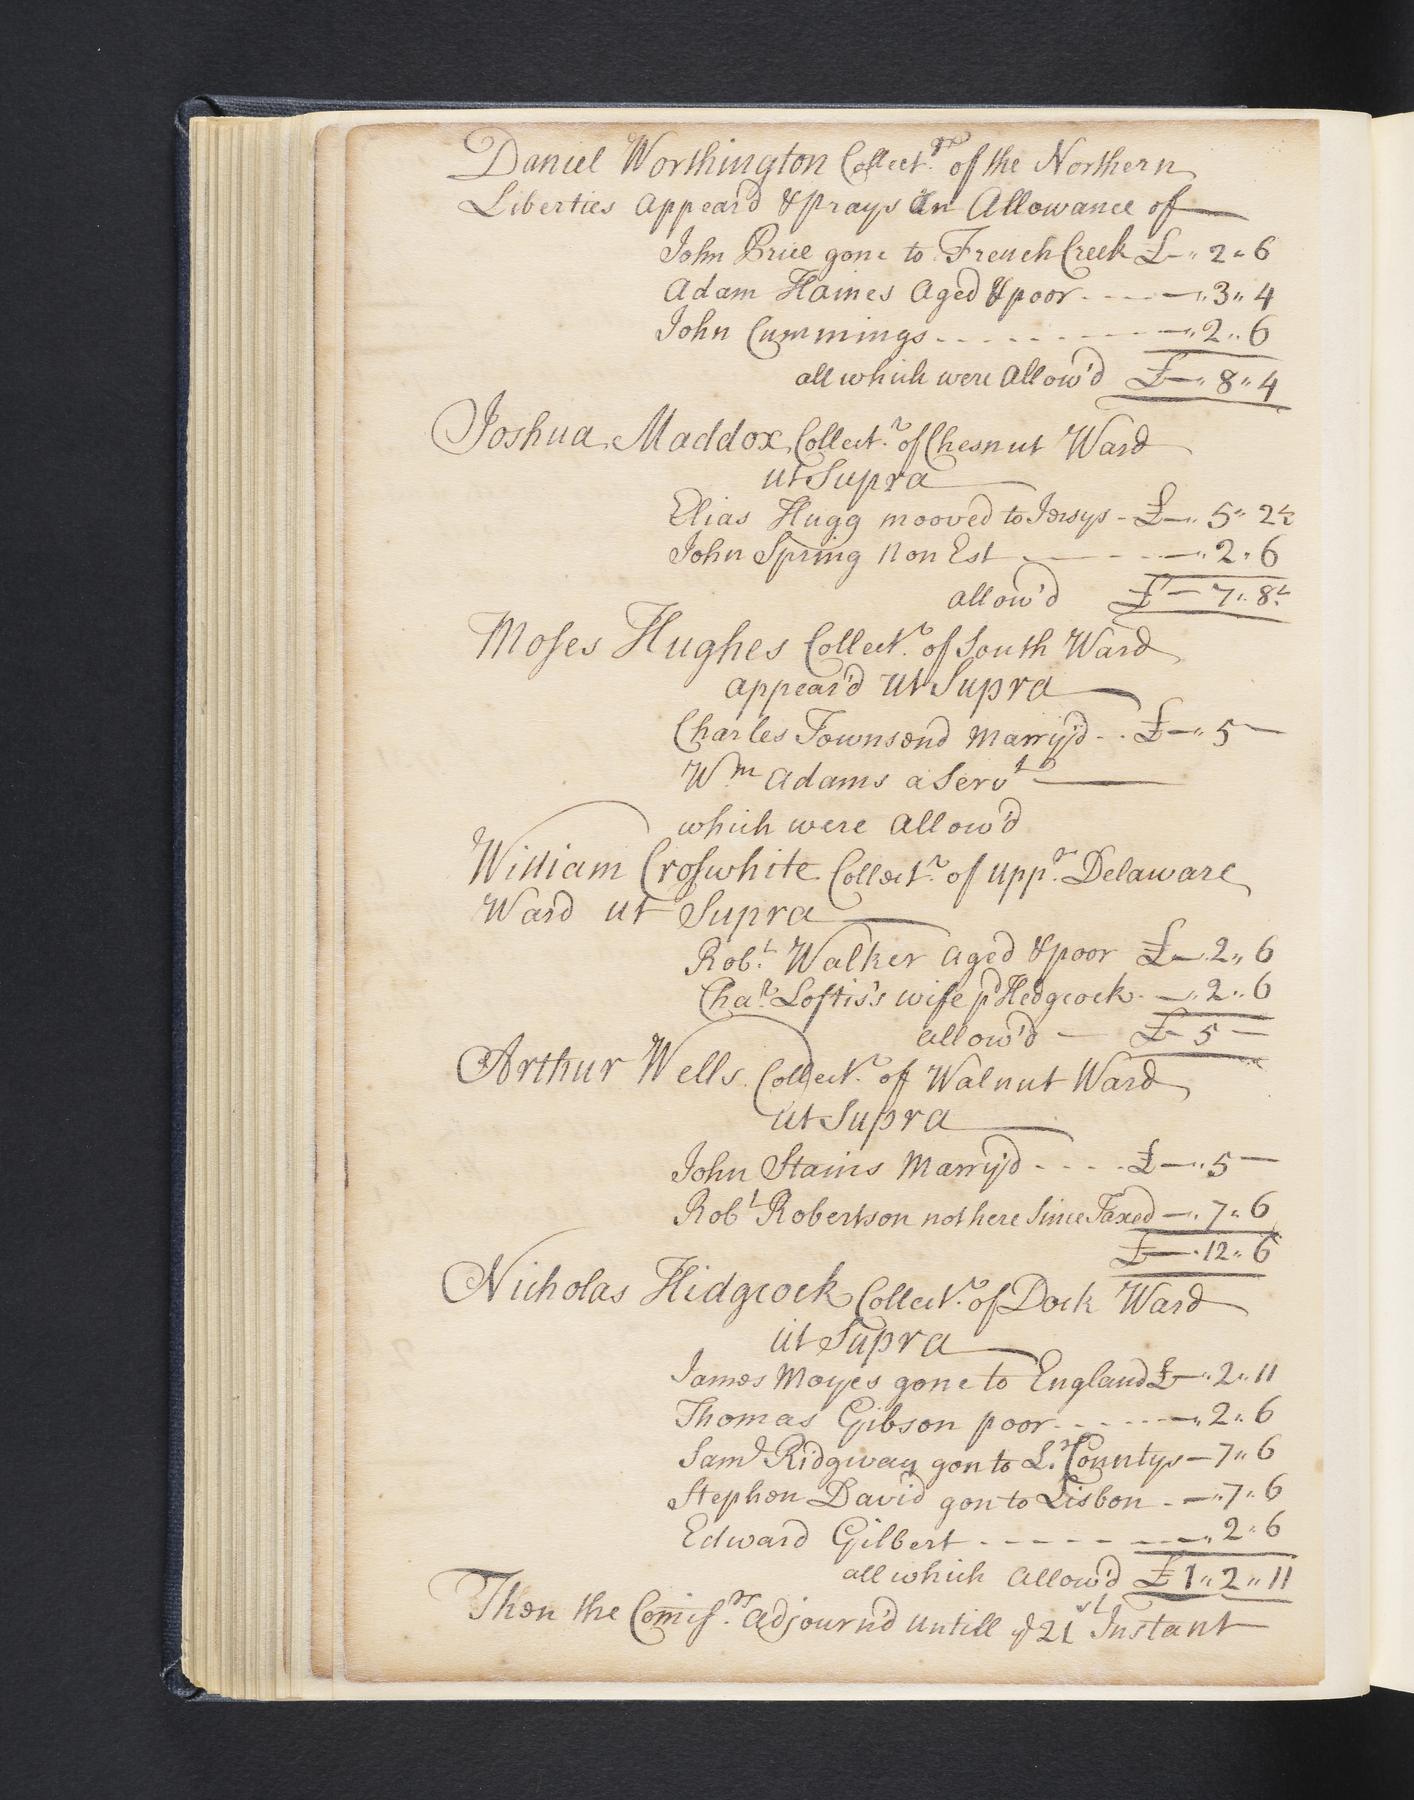 Daniel Worthington Collect.or of the Northern
Liberties appear'd & prays an Allowance of
John Price gone to French Creek £—„ 2„ 6
Adam Haines Aged & poor - - - —„ 3„ 4
John Cummings - - - - - —„ 2„ 6
all which were Allow'd £—„ 8„ 4
Joshua Maddox Collect.r of Chesnut Ward
ut Supra
Elias Hugg mooved to Jersys - £—„ 5„ 2½
John Spring Non Est - - —„ 2„ 6
allow'd £ — 7„ 8½
Moses Hughes Collect.r of South Ward
appear'd ut Supra
Charles Townsend Marry'd - - £—„ 5 —
Wm Adams a Servt
which were Allow'd
William Croswhite Collect.r of upp.r Delaware
Ward ut Supra
Rob.t Walker Aged & poor £—„ 2„ 6
Cha.s Loftis's wife p Hedgcock - —„ 2„ 6
allow'd — £ 5 —
Arthur Wells Collect.r of Walnut Ward
ut Supra
John Stains Marry'd - - - - £—„ 5 —
Robt Robertson not here Since Taxed —„ 7„ 6
£—„ 12„ 6
Nicholas Hidgcock Collect.r of Dock Ward
ut Supra
James Moyes gone to England £—„ 2„ 11
Thomas Gibson poor - - - - —„ 2„ 6
Saml Ridgway gon to L.r Countys — 7„ 6
Stephen David gon to Lisbon - —„ 7„ 6
Edward Gilbert - - - - - —„ 2„ 6
all which Allow'd £ 1„ 2„ 11
Then the Comis.rs adjourn'd untill ye 21st Instant